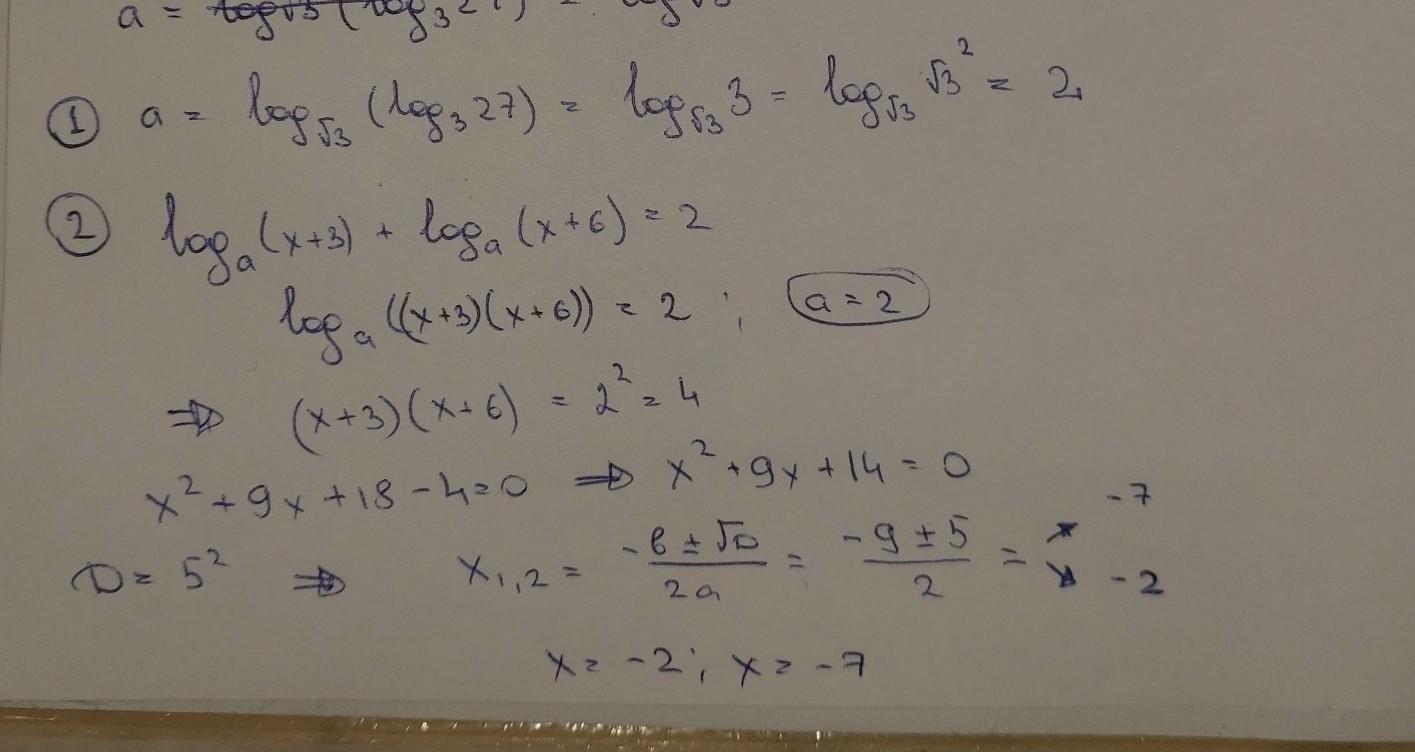 a =
① a = log√3 (log₃ 27) = log√3 3 = log√3 √3² = 2
② logₐ(x+3) + logₐ(x+6) = 2
logₐ((x+3)(x+6)) = 2 ; a = 2
⇒ (x+3)(x+6) = 2² = 4
x² + 9x + 18 - 4 = 0 ⇒ x² + 9x + 14 = 0
D = 5² ⇒ x₁,₂ = (-b ± √D)/(2a) = (-9 ± 5)/2 = ↗ -7 ↘ -2
x = -2 ; x = -7